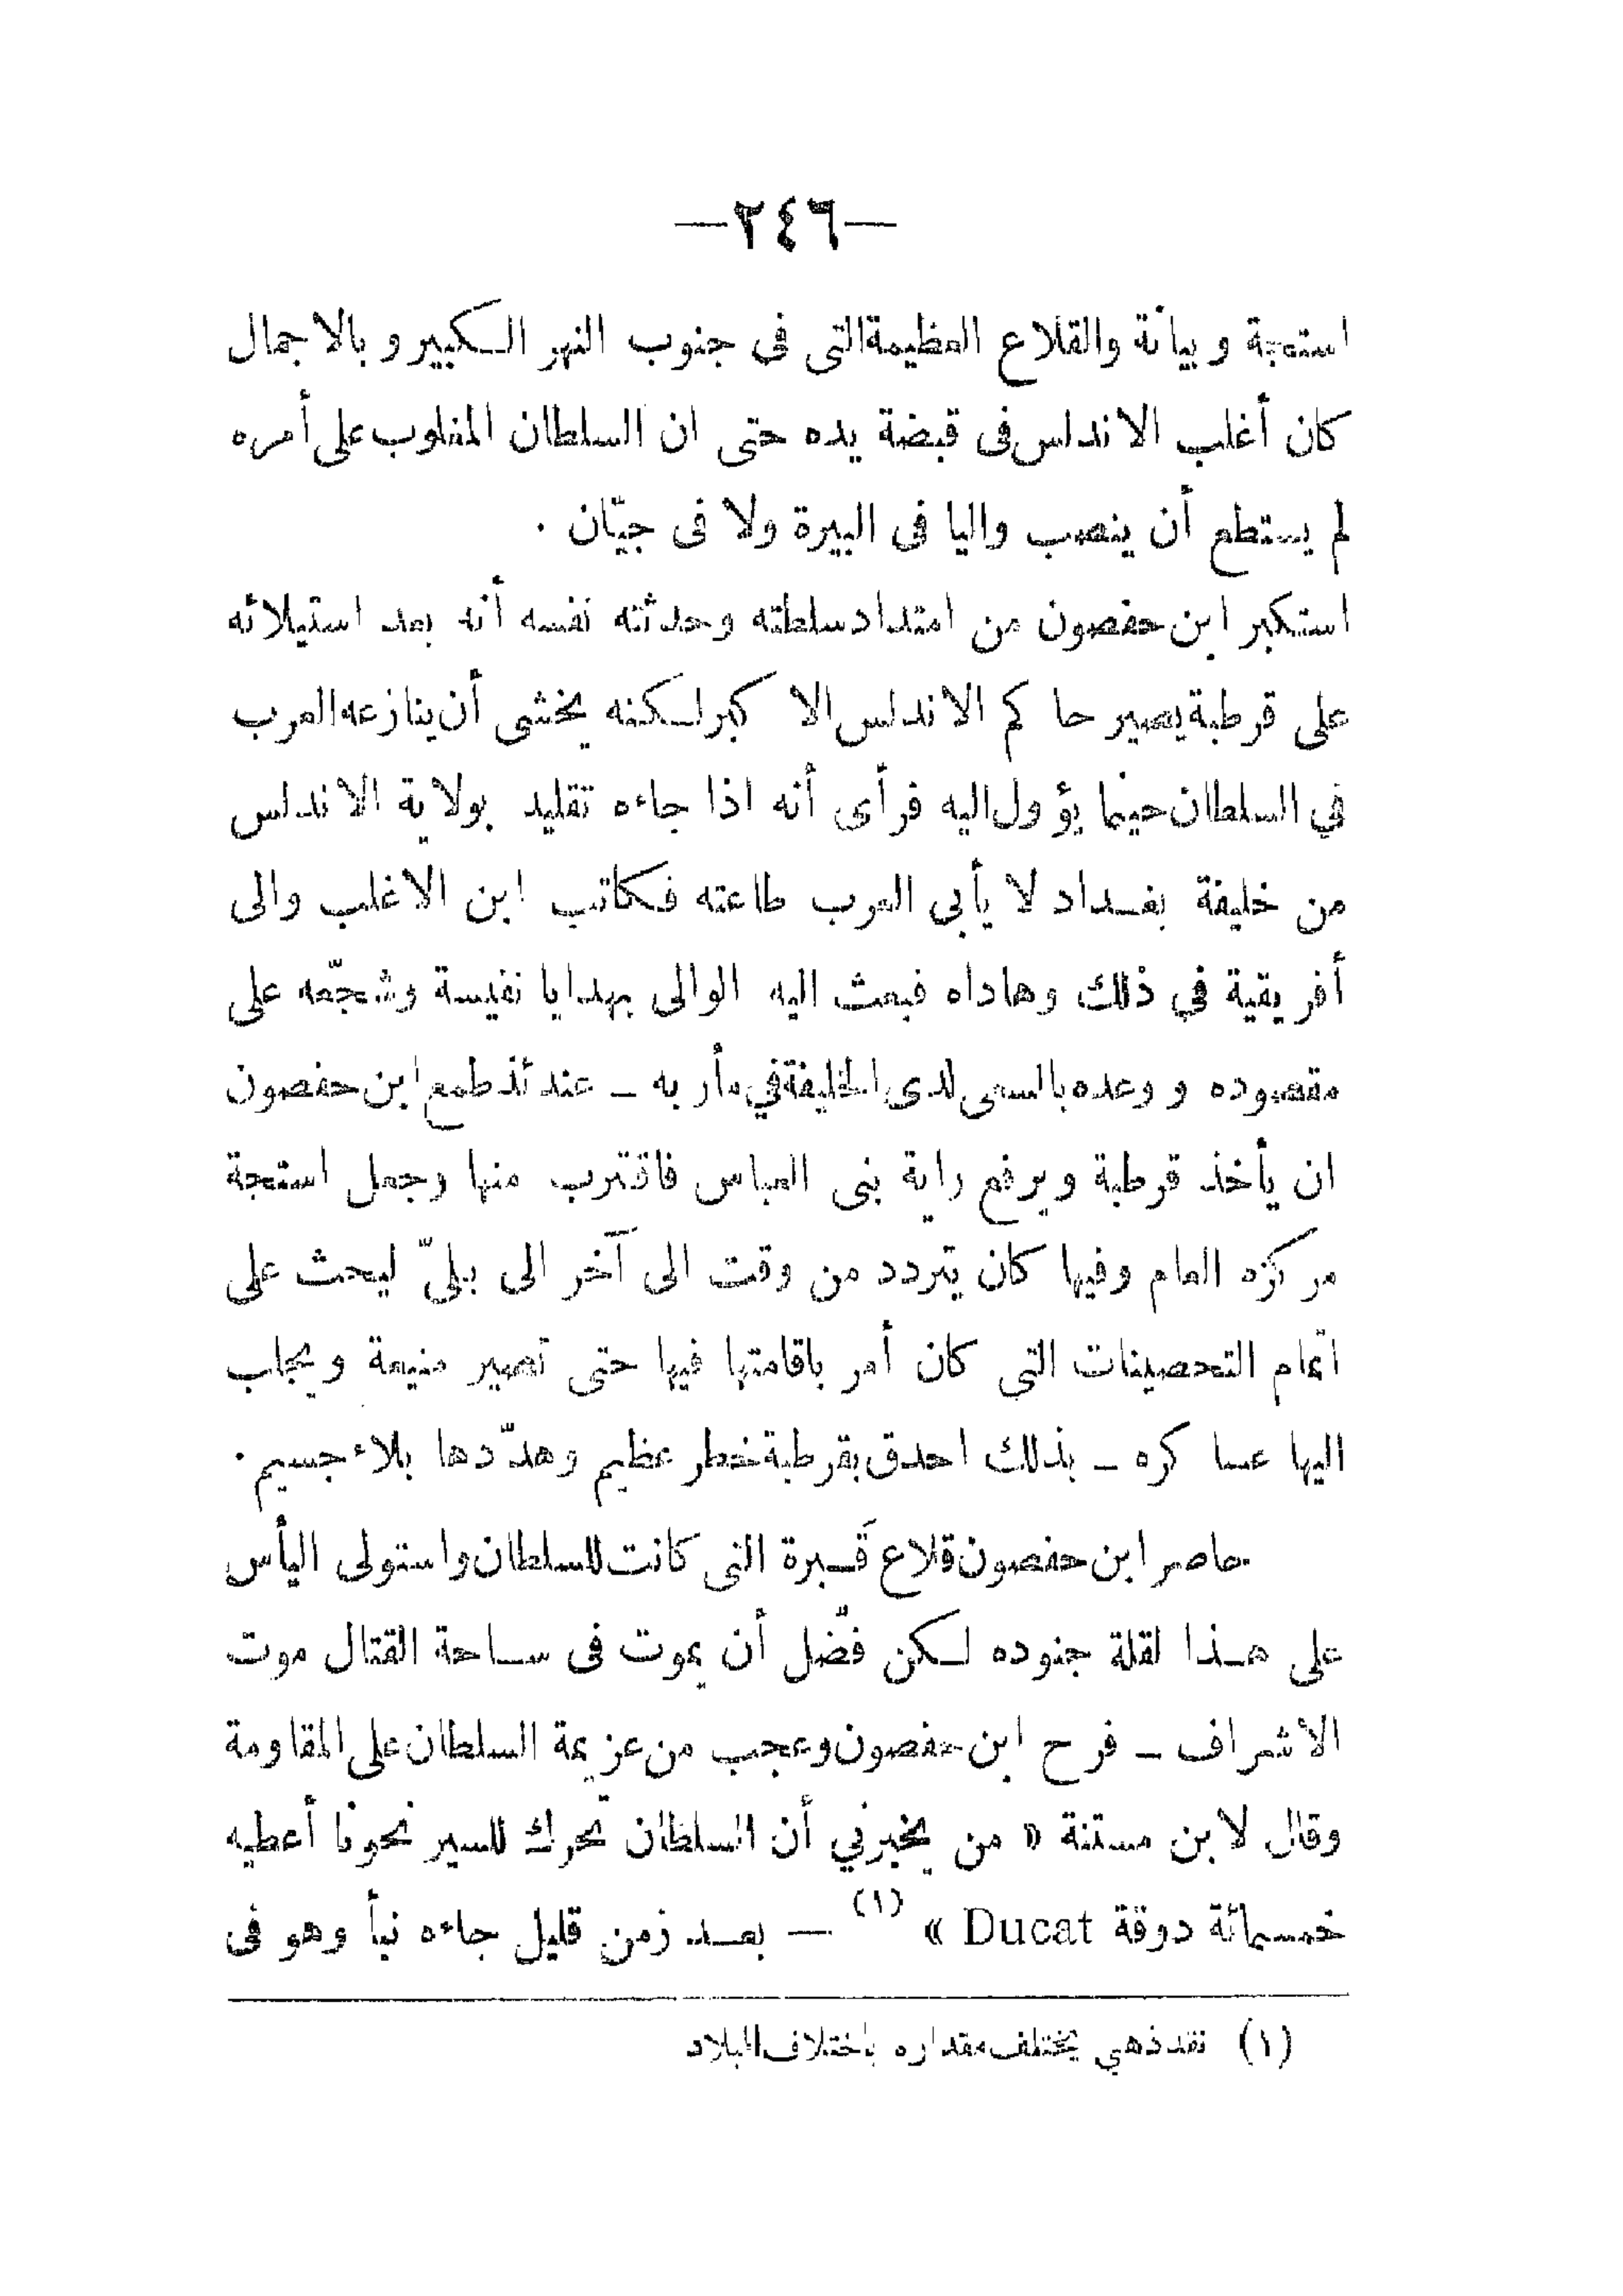 —٢٤٦—
استجة وبيانة والقلاع العظيمة التى فى جنوب النهر الكبير وبالاجمال
كان أغلب الاندلس فى قبضة يده حتى ان السلطان المغلوب على أمره
لم يستطع أن ينصب واليا فى البيرة ولا فى جيّان .
استكبر ابن حفصون من امتداد سلطته وحدثته نفسه أنه بعد استيلائه
على قرطبة يصير حاكم الاندلس الاكبر لكنه يخشى أن ينازعه العرب
في السلطان حينما يؤول اليه فرأى أنه اذا جاءه تقليد بولاية الاندلس
من خليفة بغداد لا يأبى العرب طاعته فكاتب ابن الاغلب والى
أفريقية في ذلك وهاداه فبعث اليه الوالى بهدايا نفيسة وشجّعه على
مقصوده ووعده بالسعى لدى الخليفة في مأربه – عندئذ طمع ابن حفصون
ان يأخذ قرطبة ويرفع راية بنى العباس فاقترب منها وجعل استجة
مركزه العام وفيها كان يتردد من وقت الى آخر الى بلىّ ليحث على
اتمام التحصينات التى كان أمر باقامتها فيها حتى تصير منيعة ويجلب
اليها عساكره – بذلك احدق بقرطبة خطر عظيم وهدّدها بلاء جسيم .
حاصر ابن حفصون قلاع قَبرة التى كانت للسلطان واستولى اليأس
على هذا لقلة جنوده لكن فضّل أن يموت فى ساحة القتال موت
الاشراف – فرح ابن حفصون وعجب من عزيمة السلطان على المقاومة
وقال لابن مستنة « من يخبرني أن السلطان تحرك للسير نحونا أعطيه
خمسمائة دوقة Ducat » (١) — بعد زمن قليل جاءه نبأ وهو فى
(١) نقد ذهبي يختلف مقداره باختلاف البلاد